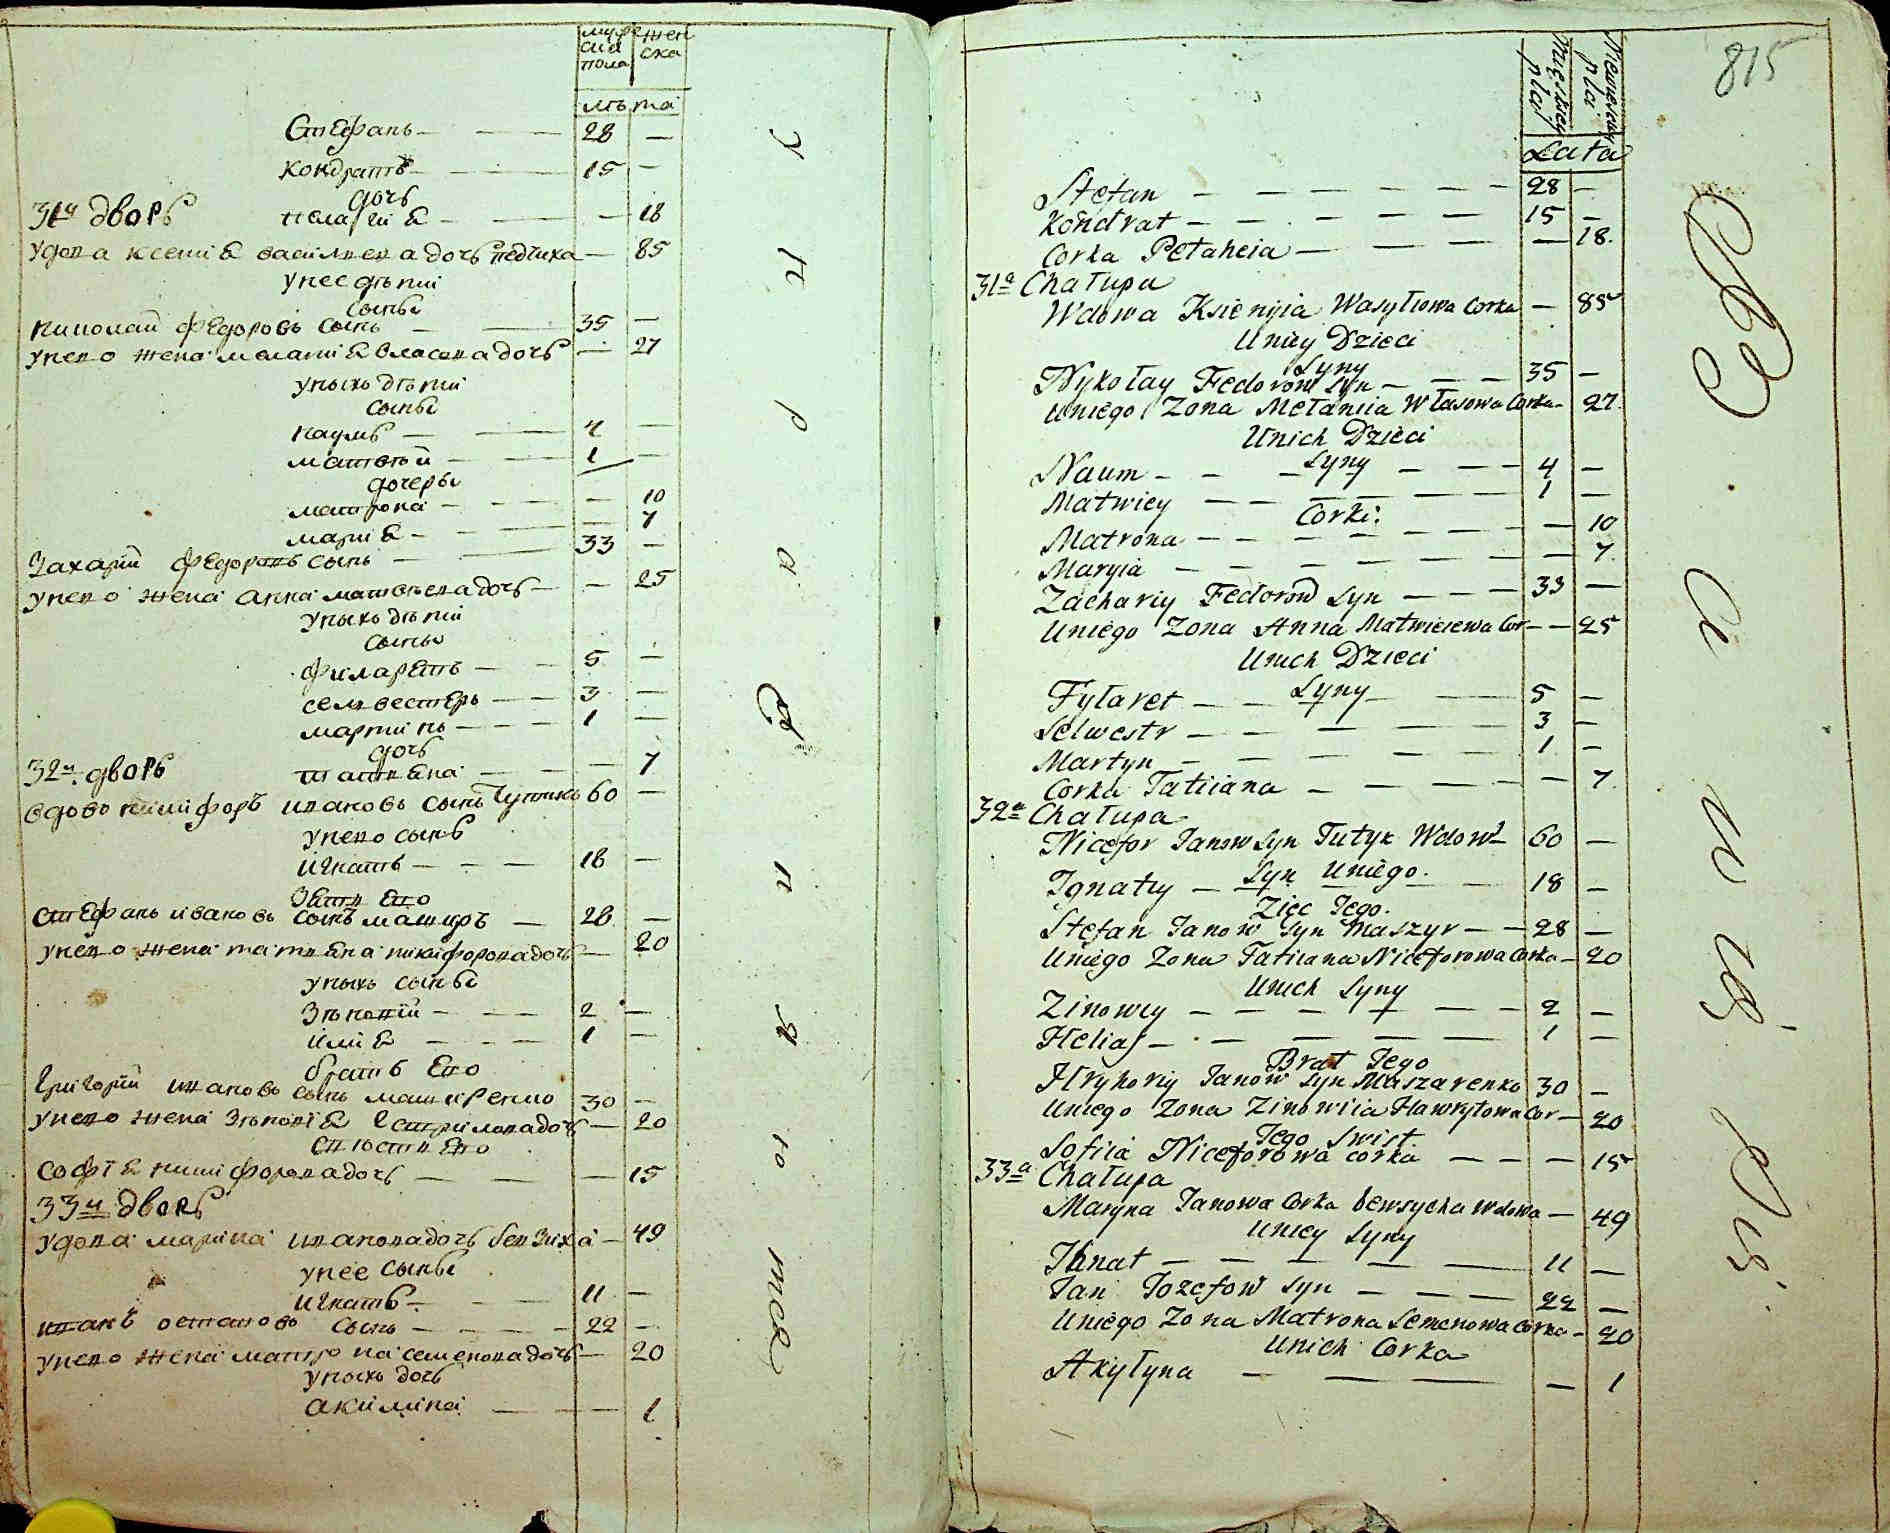 мужеска пола
женска
лѣта
Стефанъ — — — 28 —
Кондратъ — — — 15 —
дочь
31й дворъ
пелагіѣ — — — 18
удова ксеніѣ василиева дочь педчиха — 85
унее дѣти
сыны
николай федоровъ сынъ — — 35 —
унего жена меланиѣ власова дочь — 27
унихъ дѣти
сыны
наумъ — — 4 —
матвѣй — — 1 —
дочеры
матрона — — — 10
мариѣ — — — 7
Захарий федоровъ сынъ — — 33 —
унего жена анна матвѣева дочь — — 25
унихъ дѣти
сыны
филаретъ — — 5 —
селвестеръ — — 3 —
мартинъ — — — 1 —
дочь
32й дворъ
татиѣна — — — 7
вдовъ никифоръ ивановъ сынъ 60 —
унего сынъ
игнатъ — — — 18 —
зѣть его
стефанъ ивановъ сынъ маширъ — 28 —
унего жена татиѣна никифорова дочь — 20
унихъ сыны
Зѣновий — — — 2 —
илиѣ — — — 1 —
братъ его
григорий ивановъ сынъ машаренко 30 —
унего жена Зѣновіѣ гаврилова дочь — 20
свѣсть его
софіѣ никифорова дочь — — — 15
33й дворъ
удова марина иванова дочь бевзиха — 49
унее сыны
игнатъ — — — 11 —
иванъ осиповъ сынъ — — — 22 —
унего жена матрона семенова дочь — 20
унихъ дочь
акилина — — — 1
815
Męskiey płci
Niewieściey płci
Lata
Stefan — — — — — — 28 —
Kondrat — — — — — 15 —
Corka Pełaheia — — — — — 18.
31a Chałupa
Wdowa Ksienija Wasylowa Corka — 85
Uniey Dzieci
Syny
Nykołay Fedorow Syn — — — 35 —
Uniego Zona Mełaniia Własowa Corka — 27.
Unich Dzieci
Syny
Naum — — — — — — 4 —
Matwiey — — — — — — 1 —
Corki:
Matrona — — — — — — — 10
Maryia — — — — — — — 7.
Zachariy Fedorow Syn — — — 33 —
Uniego Zona Anna Matwieiewa Cor — — 25
Unich Dzieci
Syny
Fyłaret — — — — 5 —
Selwestr — — — — — 3 —
Martyn — — — — — 1 —
Corka Tatiiana — — — — — 7.
32a Chałupa
Nicefor Janow Syn Tutyk Wdow. 60 —
Syn Uniego.
Ignatiy — — — — 18 —
Zięć Jego.
Stefan Janow Syn Maszyr — — 28 —
Uniego Zona Tatiiana Niceforowa Corka — 20
Unich Syny
Zinowiy — — — — — — 2 —
Helias — — — — — — 1 —
Brat Jego
Hryhoriy Janow Syn Maszarenko 30 —
Uniego Zona Zinowiia Hawryłowa Cor — 20
Jego Swist
Sofiia Niceforowa corka — — — 15
33a Chałupa
Maryna Janowa Corka bewsycha Wdowa — 49
Uniey Syny
Ihnat — — — — — 11 —
Jan Jozefow Syn — — — 22 —
Uniego Zona Matrona Semenowa Corka — 20
Unich Corka
Akyłyna — — — — 1